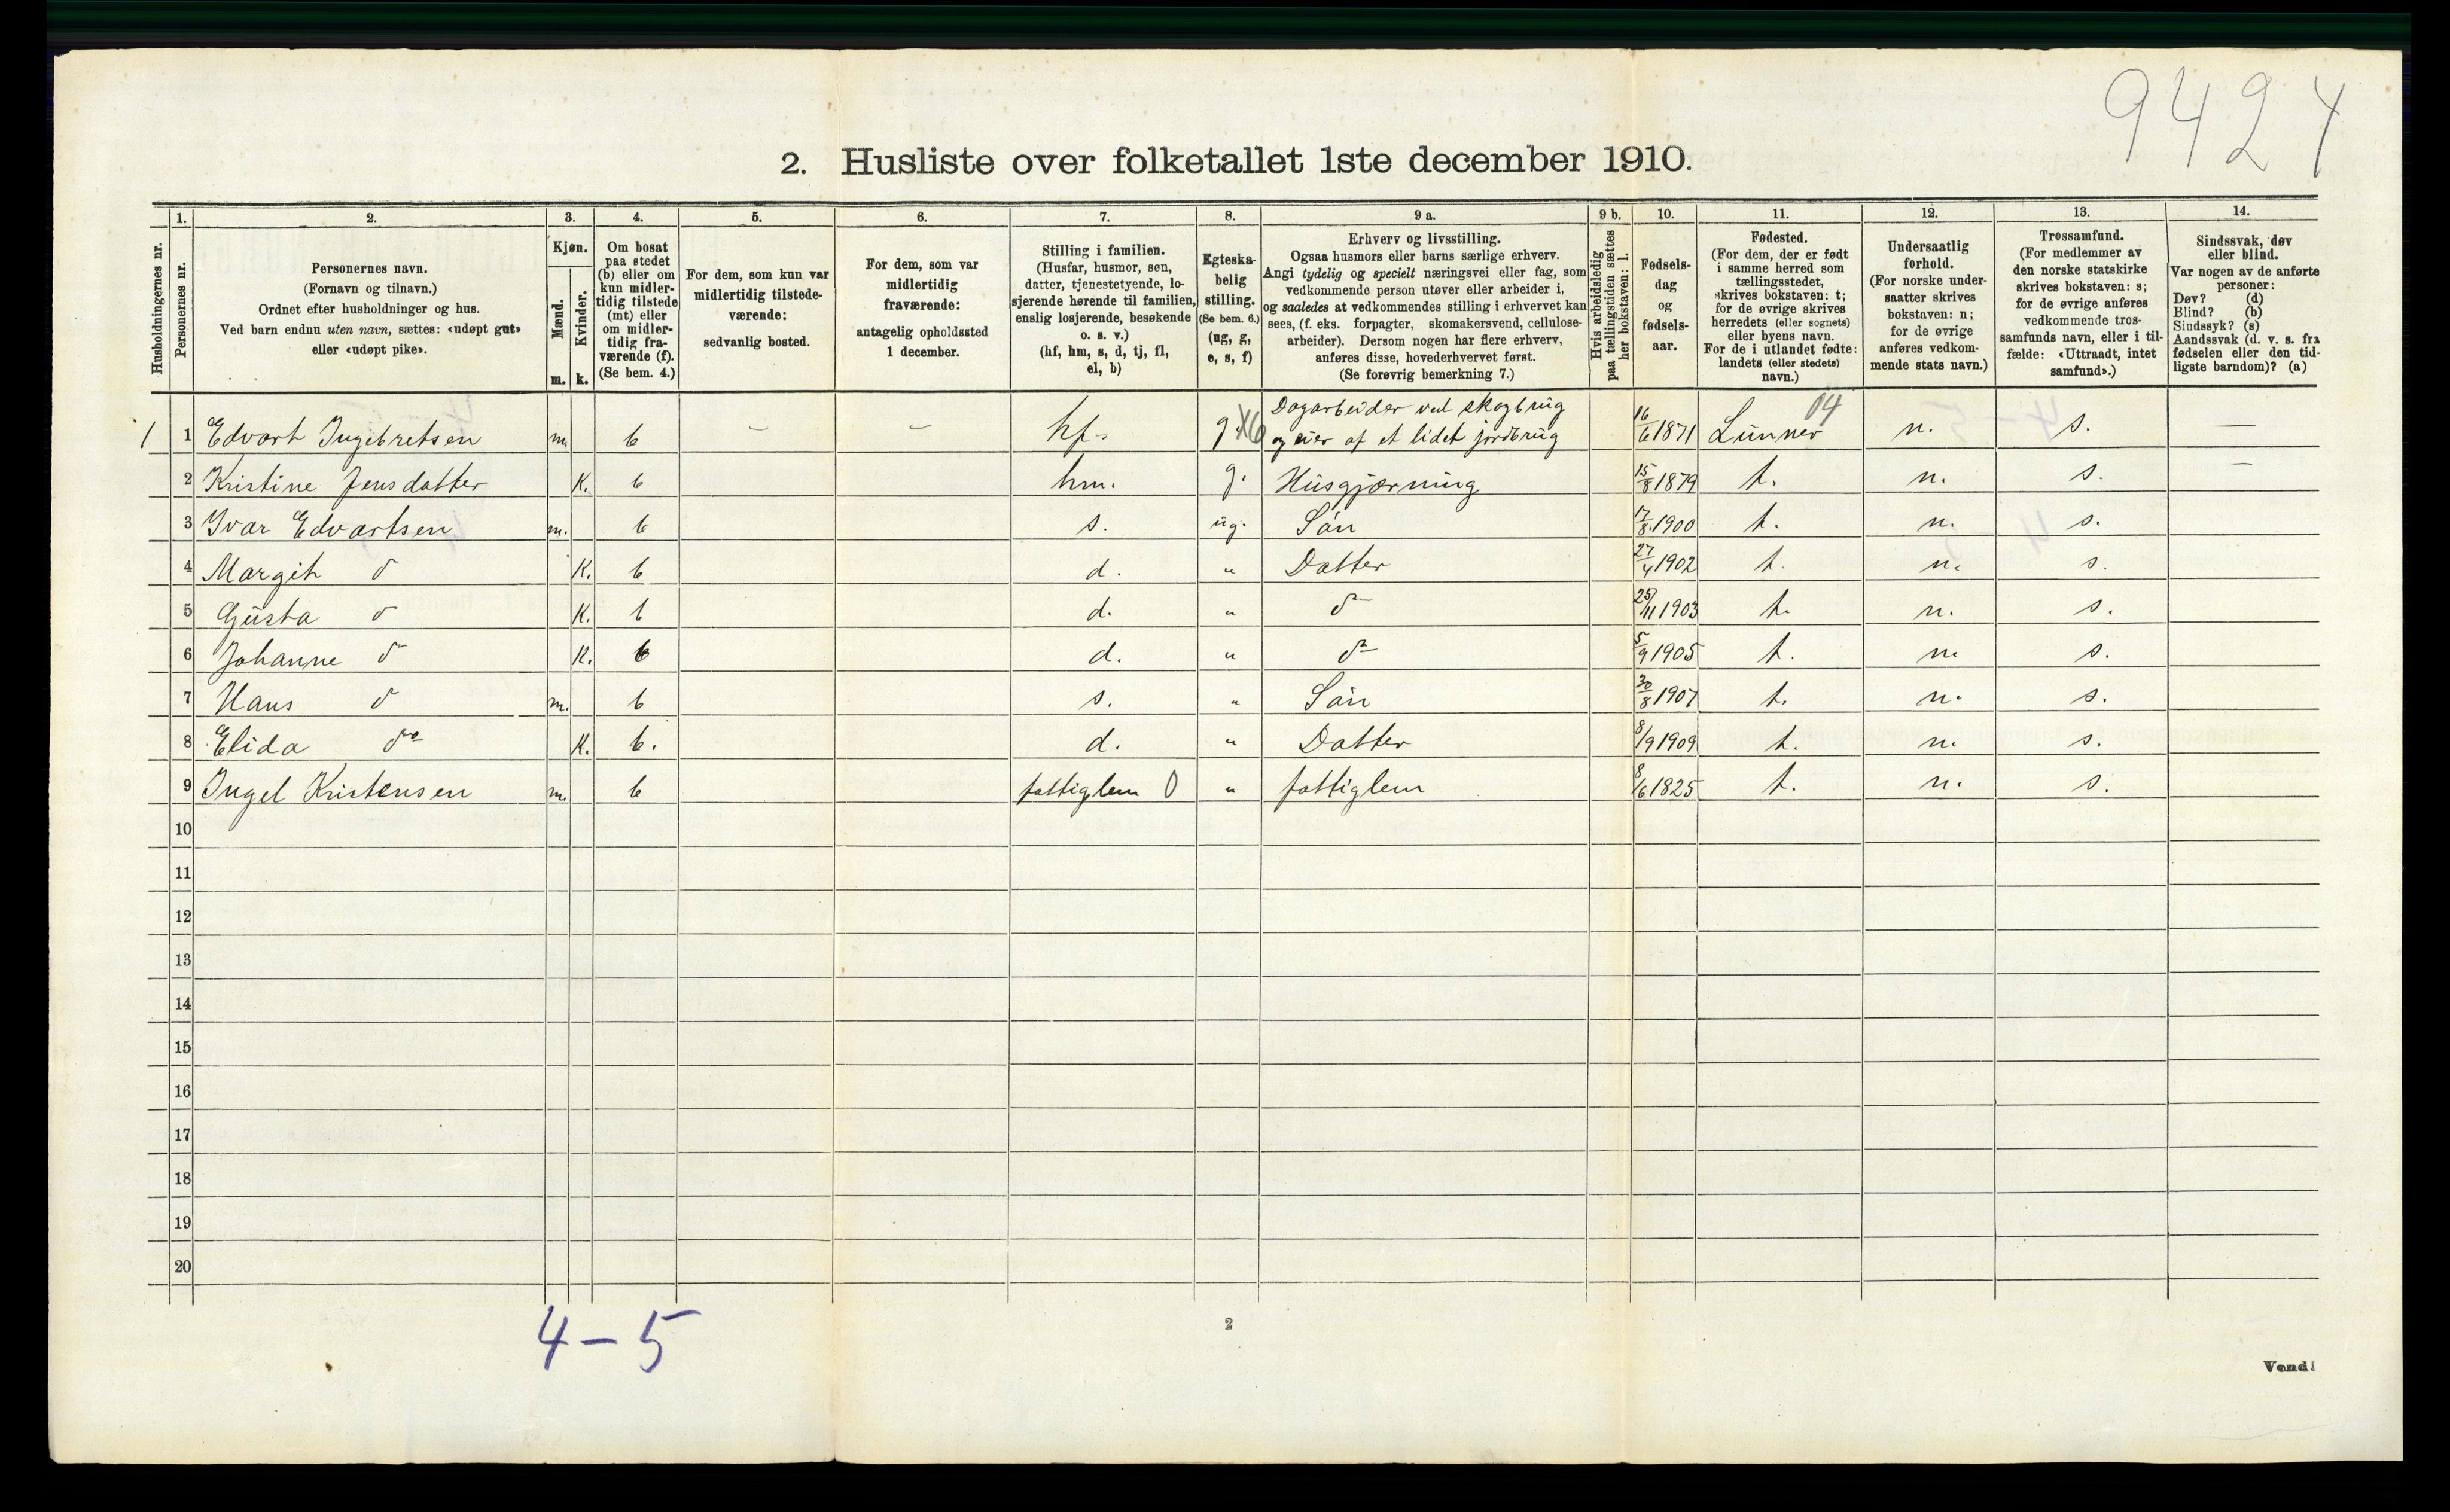 9424
2. Husliste over folketallet 1ste december 1910.
Husholdningernes nr.
1.
Personernes nr.
2.
Personernes navn.
(Fornavn og tilnavn.)
Ordnet efter husholdninger og hus.
Ved barn endnu uten navn, sættes: «udøpt gut»
eller «udøpt pike».
3.
Kjøn.
Mænd.
m.
Kvinder.
k.
4.
Om bosat
paa stedet
(b) eller om
kun midler-
tidig tilstede
(mt) eller
om midler-
tidig fra-
værende (f).
(Se bem. 4.)
5.
For dem, som kun var
midlertidig tilstede-
værende:
sedvanlig bosted.
6.
For dem, som var
midlertidig
fraværende:
antagelig opholdssted
1 december.
7.
Stilling i familien.
(Husfar, husmor, søn,
datter, tjenestetyende, lo-
sjerende hørende til familien,
enslig losjerende, besøkende
o. s. v.)
(hf, hm, s, d, tj, fl,
el, b)
8.
Egteska-
belig
stilling.
(Se bem. 6.)
(ug, g,
e, s, f)
9 a.
Erhverv og livsstilling.
Ogsaa husmors eller barns særlige erhverv.
Angi tydelig og specielt næringsvei eller fag, som
vedkommende person utøver eller arbeider i,
og saaledes at vedkommendes stilling i erhvervet kan
sees, (f. eks. forpagter, skomakersvend, cellulose-
arbeider). Dersom nogen har flere erhverv,
anføres disse, hovederhvervet først.
(Se forøvrig bemerkning 7.)
9 b.
Hvis arbeidsledig
paa tællingstiden sættes
her bokstaven: l.
10.
Fødsels-
dag
og
fødsels-
aar.
11.
Fødested.
(For dem, der er født
i samme herred som
tællingsstedet,
skrives bokstaven: t;
for de øvrige skrives
herredets (eller sognets)
eller byens navn.
For de i utlandet fødte:
landets (eller stedets)
navn.)
12.
Undersaatlig
forhold.
(For norske under-
saatter skrives
bokstaven: n;
for de øvrige
anføres vedkom-
mende stats navn.)
13.
Trossamfund.
(For medlemmer av
den norske statskirke
skrives bokstaven: s;
for de øvrige anføres
vedkommende tros-
samfunds navn, eller i til-
fælde: «Uttraadt, intet
samfund».)
14.
Sindssvak, døv
eller blind.
Var nogen av de anførte
personer:
Døv? (d)
Blind? (b)
Sindssyk? (s)
Aandssvak (d. v. s. fra
fødselen eller den tid-
ligste barndom)? (a)
1 1 Edvart Ingebretsen m. b – – hf. g. X6 Dagarbeider ved skogbrug
og eier af et lidet jordbrug 16/6 1871 Lunner 04 n. s. —
2 Kristine Jensdatter K. b hm. g. Husgjørning 15/8 1879 t. n. s. –
3 Ivar Edvartsen m. b s. ug. Søn 17/8 1900 t. n. s.
4 Margit do K. b d. " Datter 27/4 1902 t. n. s.
5 Gusta do K. b d. " do 25/11 1903 t. n. s.
6 Johanne do K. b d. " do 5/9 1905 t. n. s.
7 Hans do m. b s. " Søn 30/8 1907 t. n. s.
8 Elida do K. b. d. " Datter 8/9 1909 t. n. s.
9 Ingel Kristensen m. b fattiglem 0 " fattiglem 8/6 1825 t. n. s.
10
11
12
13
14
15
16
17
18
19
20
4 – 5
2
Vend!